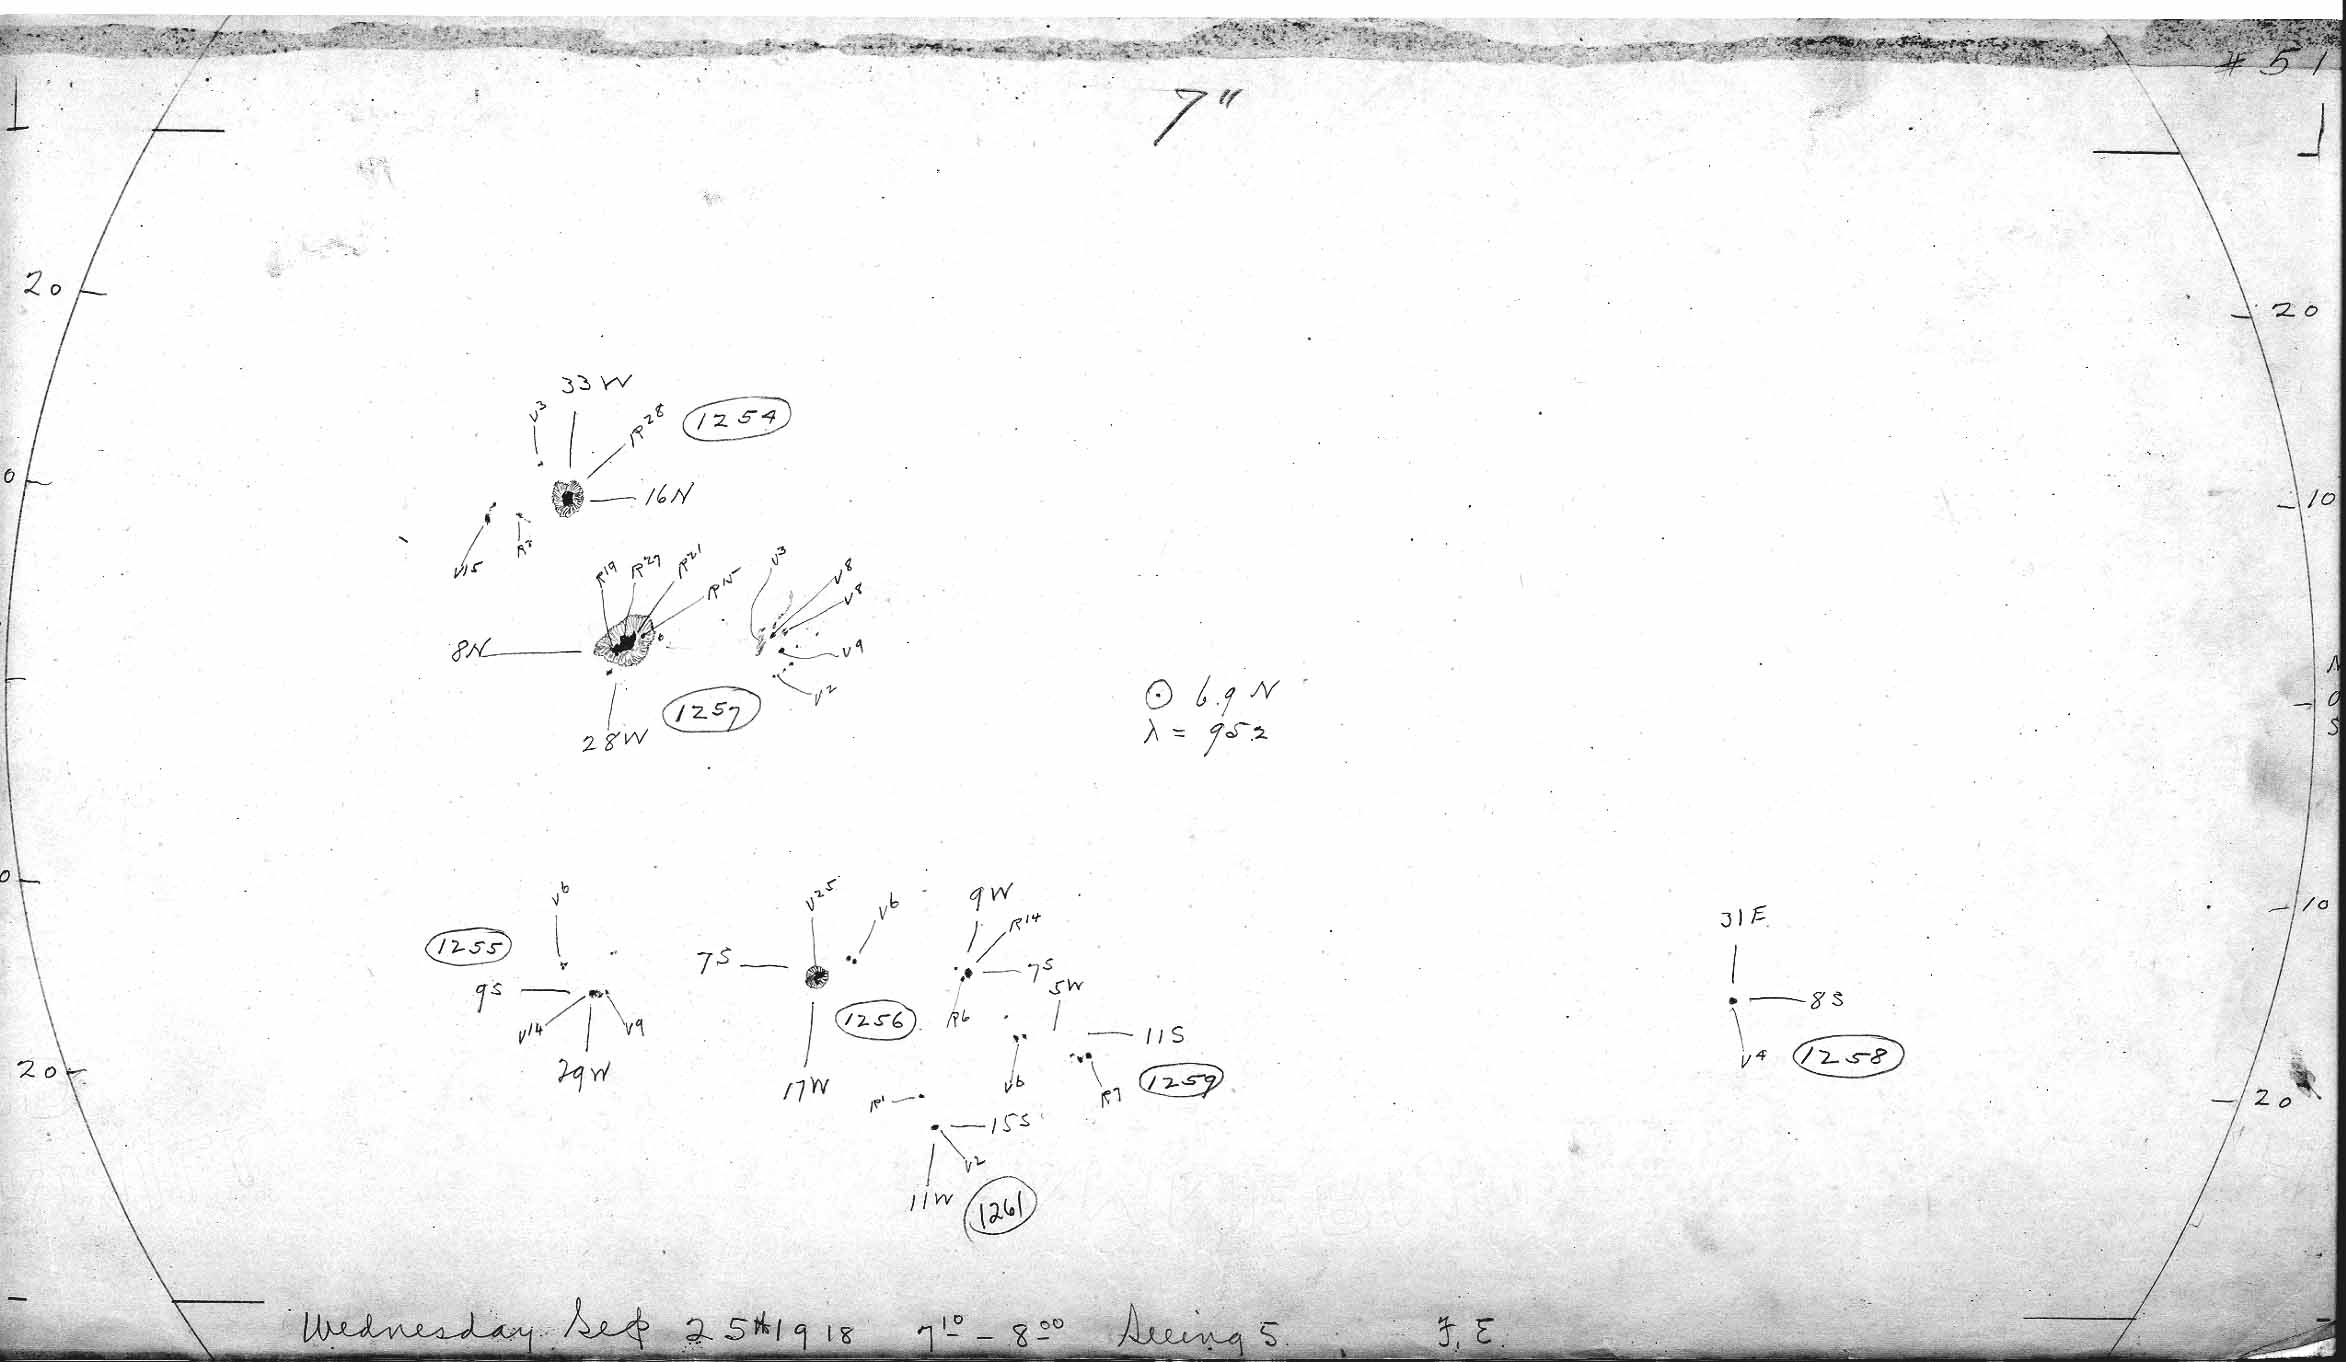 # 51
7"
20
20
33W
V3
R28
1254
16N
0
10
V15
R19
R27
R21
R15
V3
V8
V8
8N
V9
V2
1257
28W
N
0
S
☉ 6.9 N
λ = 95.2
0
10
V6
V25
V6
9W
R14
31E
1255
7S
7S
9S
5W
8S
V14
V9
1256
R6
11S
V4
1258
29W
17W
V6
R7
1259
20
20
R1
15S
V2
11W
1261
Wednesday Sep 25th 1918 7 10 - 8 00 Seeing 5. F. E.